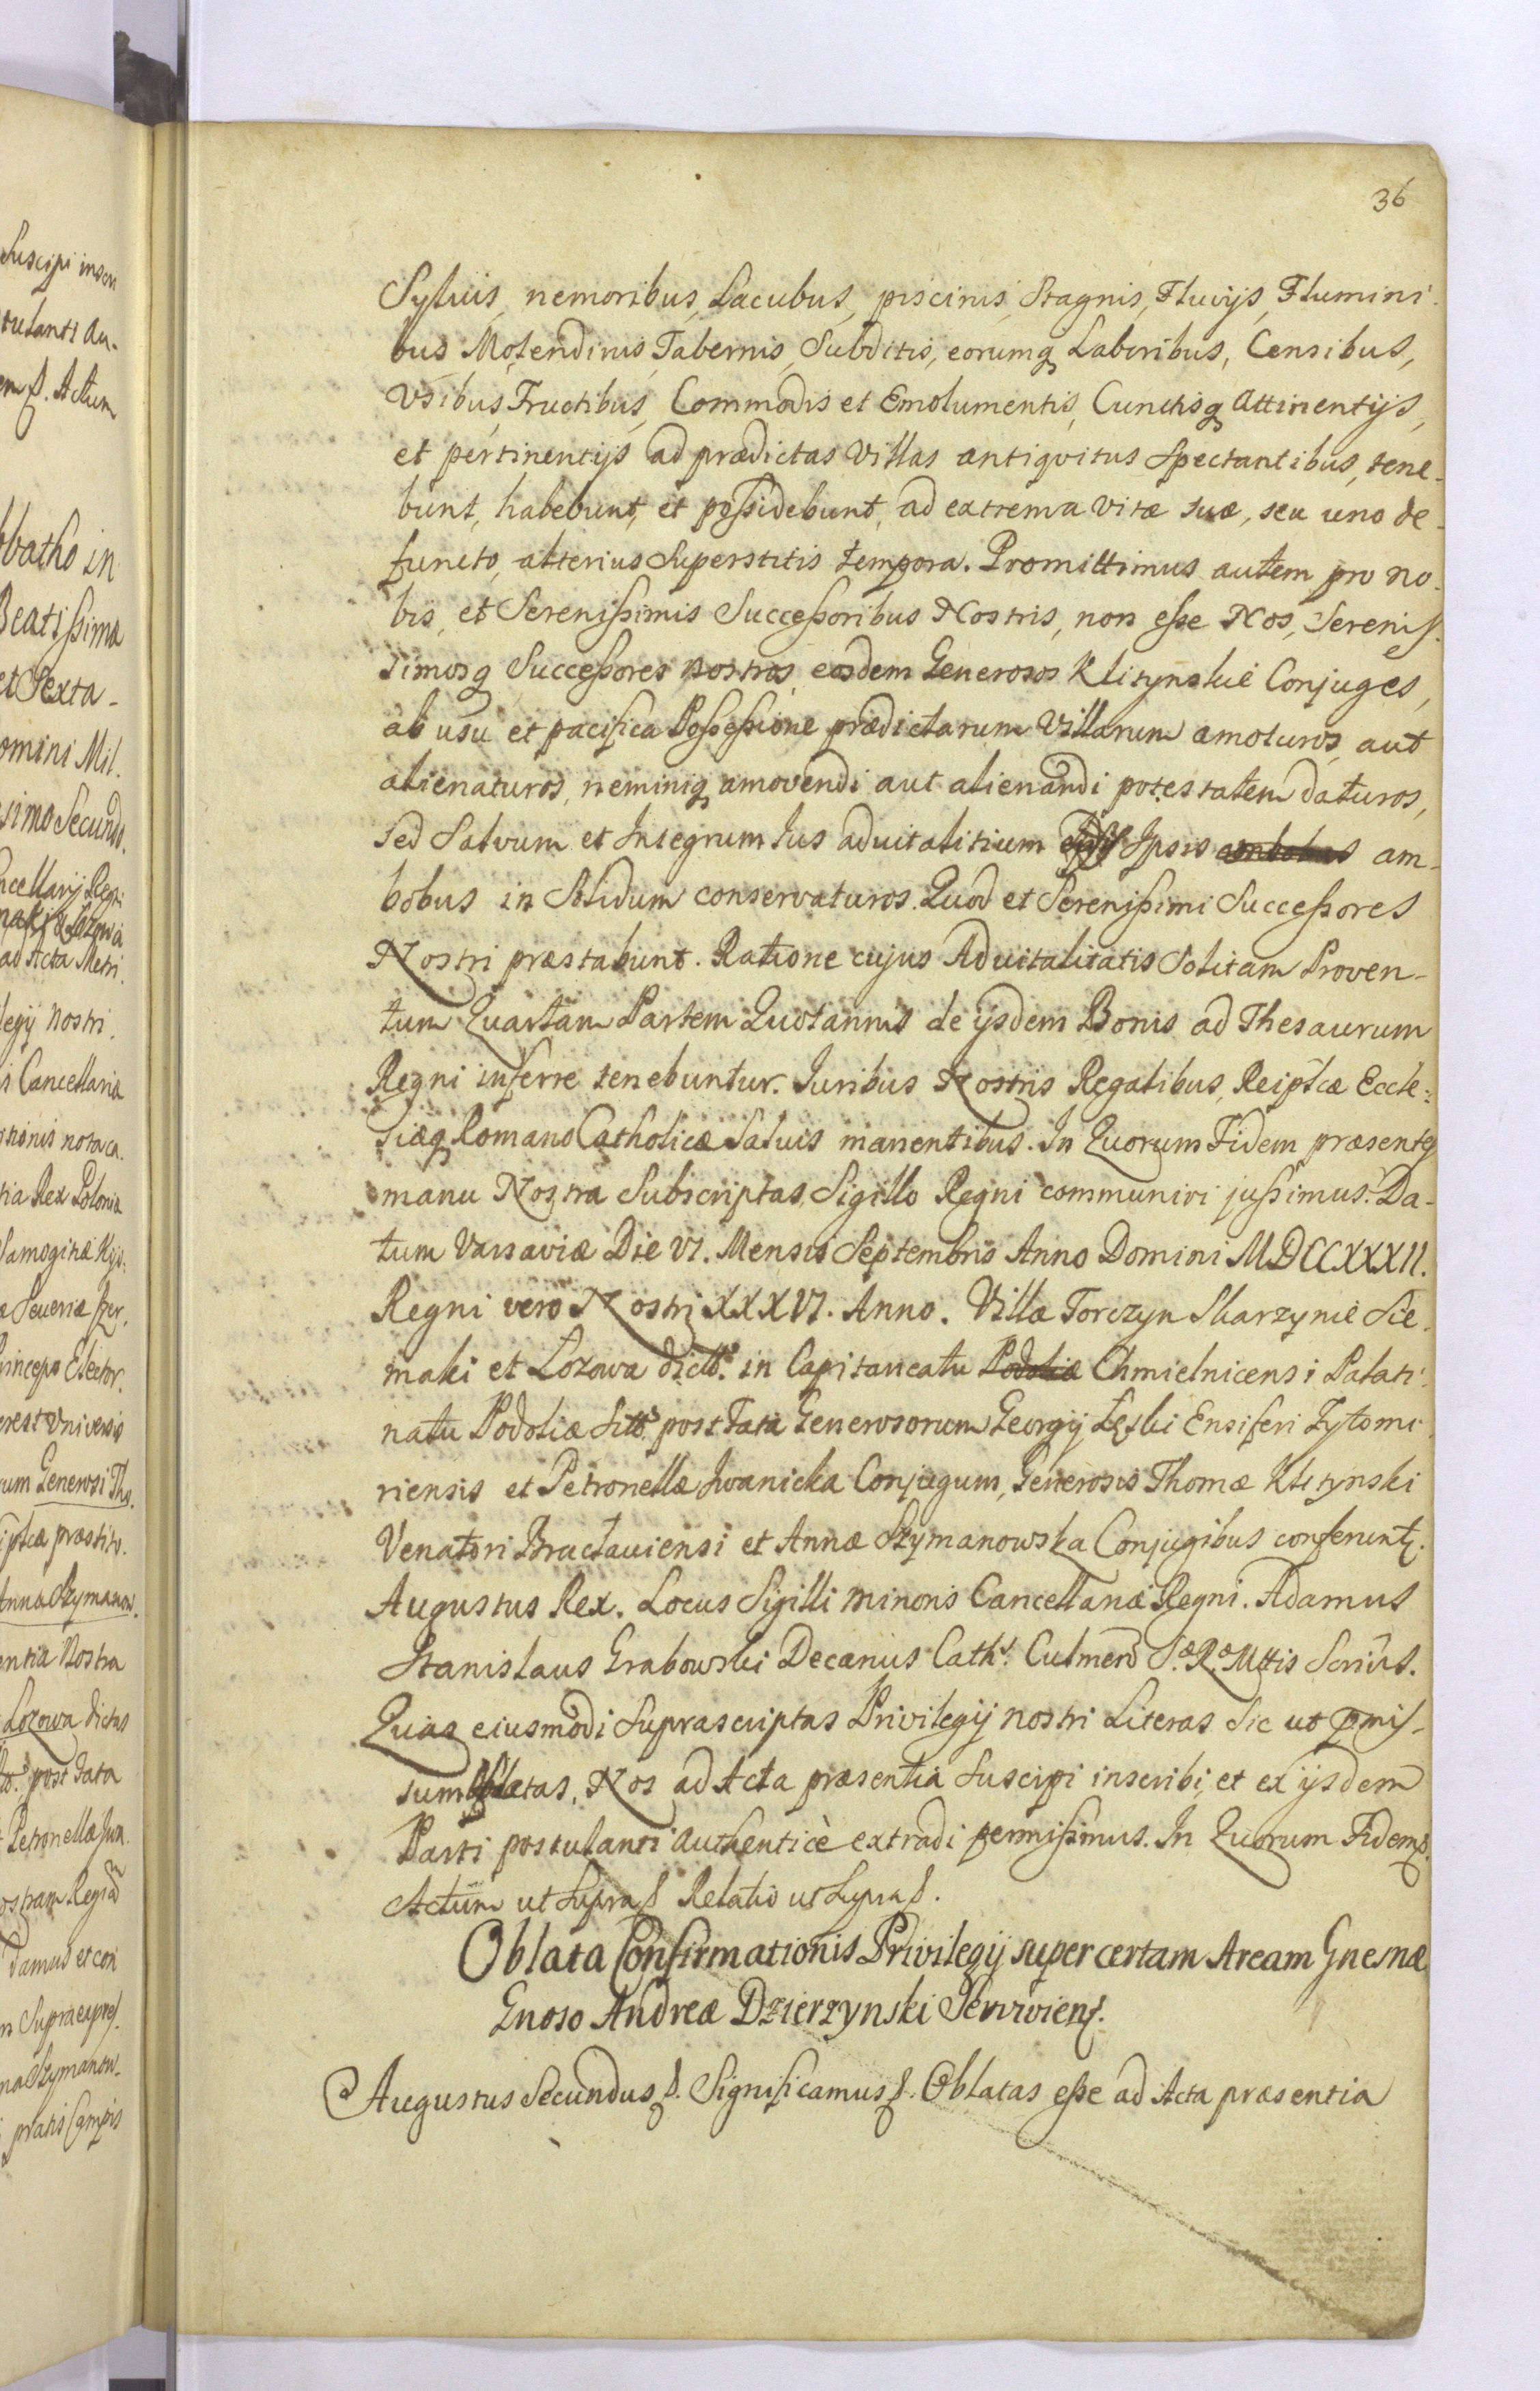 36
Sylvis, nemoribus, Lacubus, piscinis, Stagnis, Fluvijs, Flumini-
bus, Molendinis, Tabernis, Subditis, eorumq Laboribus, Censibus,
Usibus, Fructibus, Commodis et Emolumentis, Cunctisq Attinentijs,
et pertinentijs ad prædictas Villas antiqvitus Spectantibus, tene-
bunt, habebunt, et possidebunt, ad extrema vitæ suæ, seu uno de-
functo, alterius Superstitis tempora. Promittimus autem pro no-
bis, et Serenissimis Successoribus Nostris, non esse Nos, Serenis-
simosq Successores nostros, eosdem Generosos Klitynskie Conjuges,
ab usu et pacifica Possessione prædictarum Villarum amoturos, aut
alienaturos, neminiq amovendi aut alienandi potestatem daturos,
Sed Salvum et Integrum Ius advitalitium Ipsis am-
bobus in Solidum conservaturos. Quod et Serenissimi Successores
Nostri præstabunt. Ratione cujus Advitalitatis Solitam Proven-
tum Quartam Partem Quotannis de ijsdem Bonis ad Thesaurum
Regni inferre tenebuntur. Iuribus Nostris Regalibus, Reiplcæ Eccle-
siæq Romano Catholicæ Salvis manentibus. In Quorum Fidem præsentes
manu Nostra Subscriptas, Sigillo Regni communiri jussimus. Da-
tum Varsaviæ Die VI. Mensis Septembris Anno Domini MDCCXXXII.
Regni vero Nostri XXXVI. Anno. Villæ Torczyn Skarzynie Sie-
maki et Lozowa dictæ in Capitaneatu Podoliæ Chmielnicensi Palati-
natu Podoliæ sitæ post Fata Generosorum Georgij Łęski Ensiferi Zytomi-
riensis et Petronellæ Iwanicka Conjugum, Generosis Thomæ Klitynski
Venatori Bractaviensi et Annæ Szymanowska Conjugibus conferuntr.
Augustus Rex. Locus Sigilli minoris Cancellariæ Regni. Adamus
Stanislaus Grabowski Decanus Cathl. Culmen S.æ R.æ Mttis Scrius.
Quas eiusmodi Suprascriptas Privilegij nostri Literas Sic ut pmis-
sum Oblatas, Nos ad Acta præsentia Suscipi inscribi, et ex ijsdem
Parti postulanti authenticè extradi permissimus. In Quorum Fidem
Actum ut Supra Relatio ut Supra.
Oblata Confirmationis Privilegij super certam Aream Gnesnæ
Gnoso Andreæ Dzierzynski Servien.
Augustus Secundus Significamus Oblatas esse ad Acta præsentia